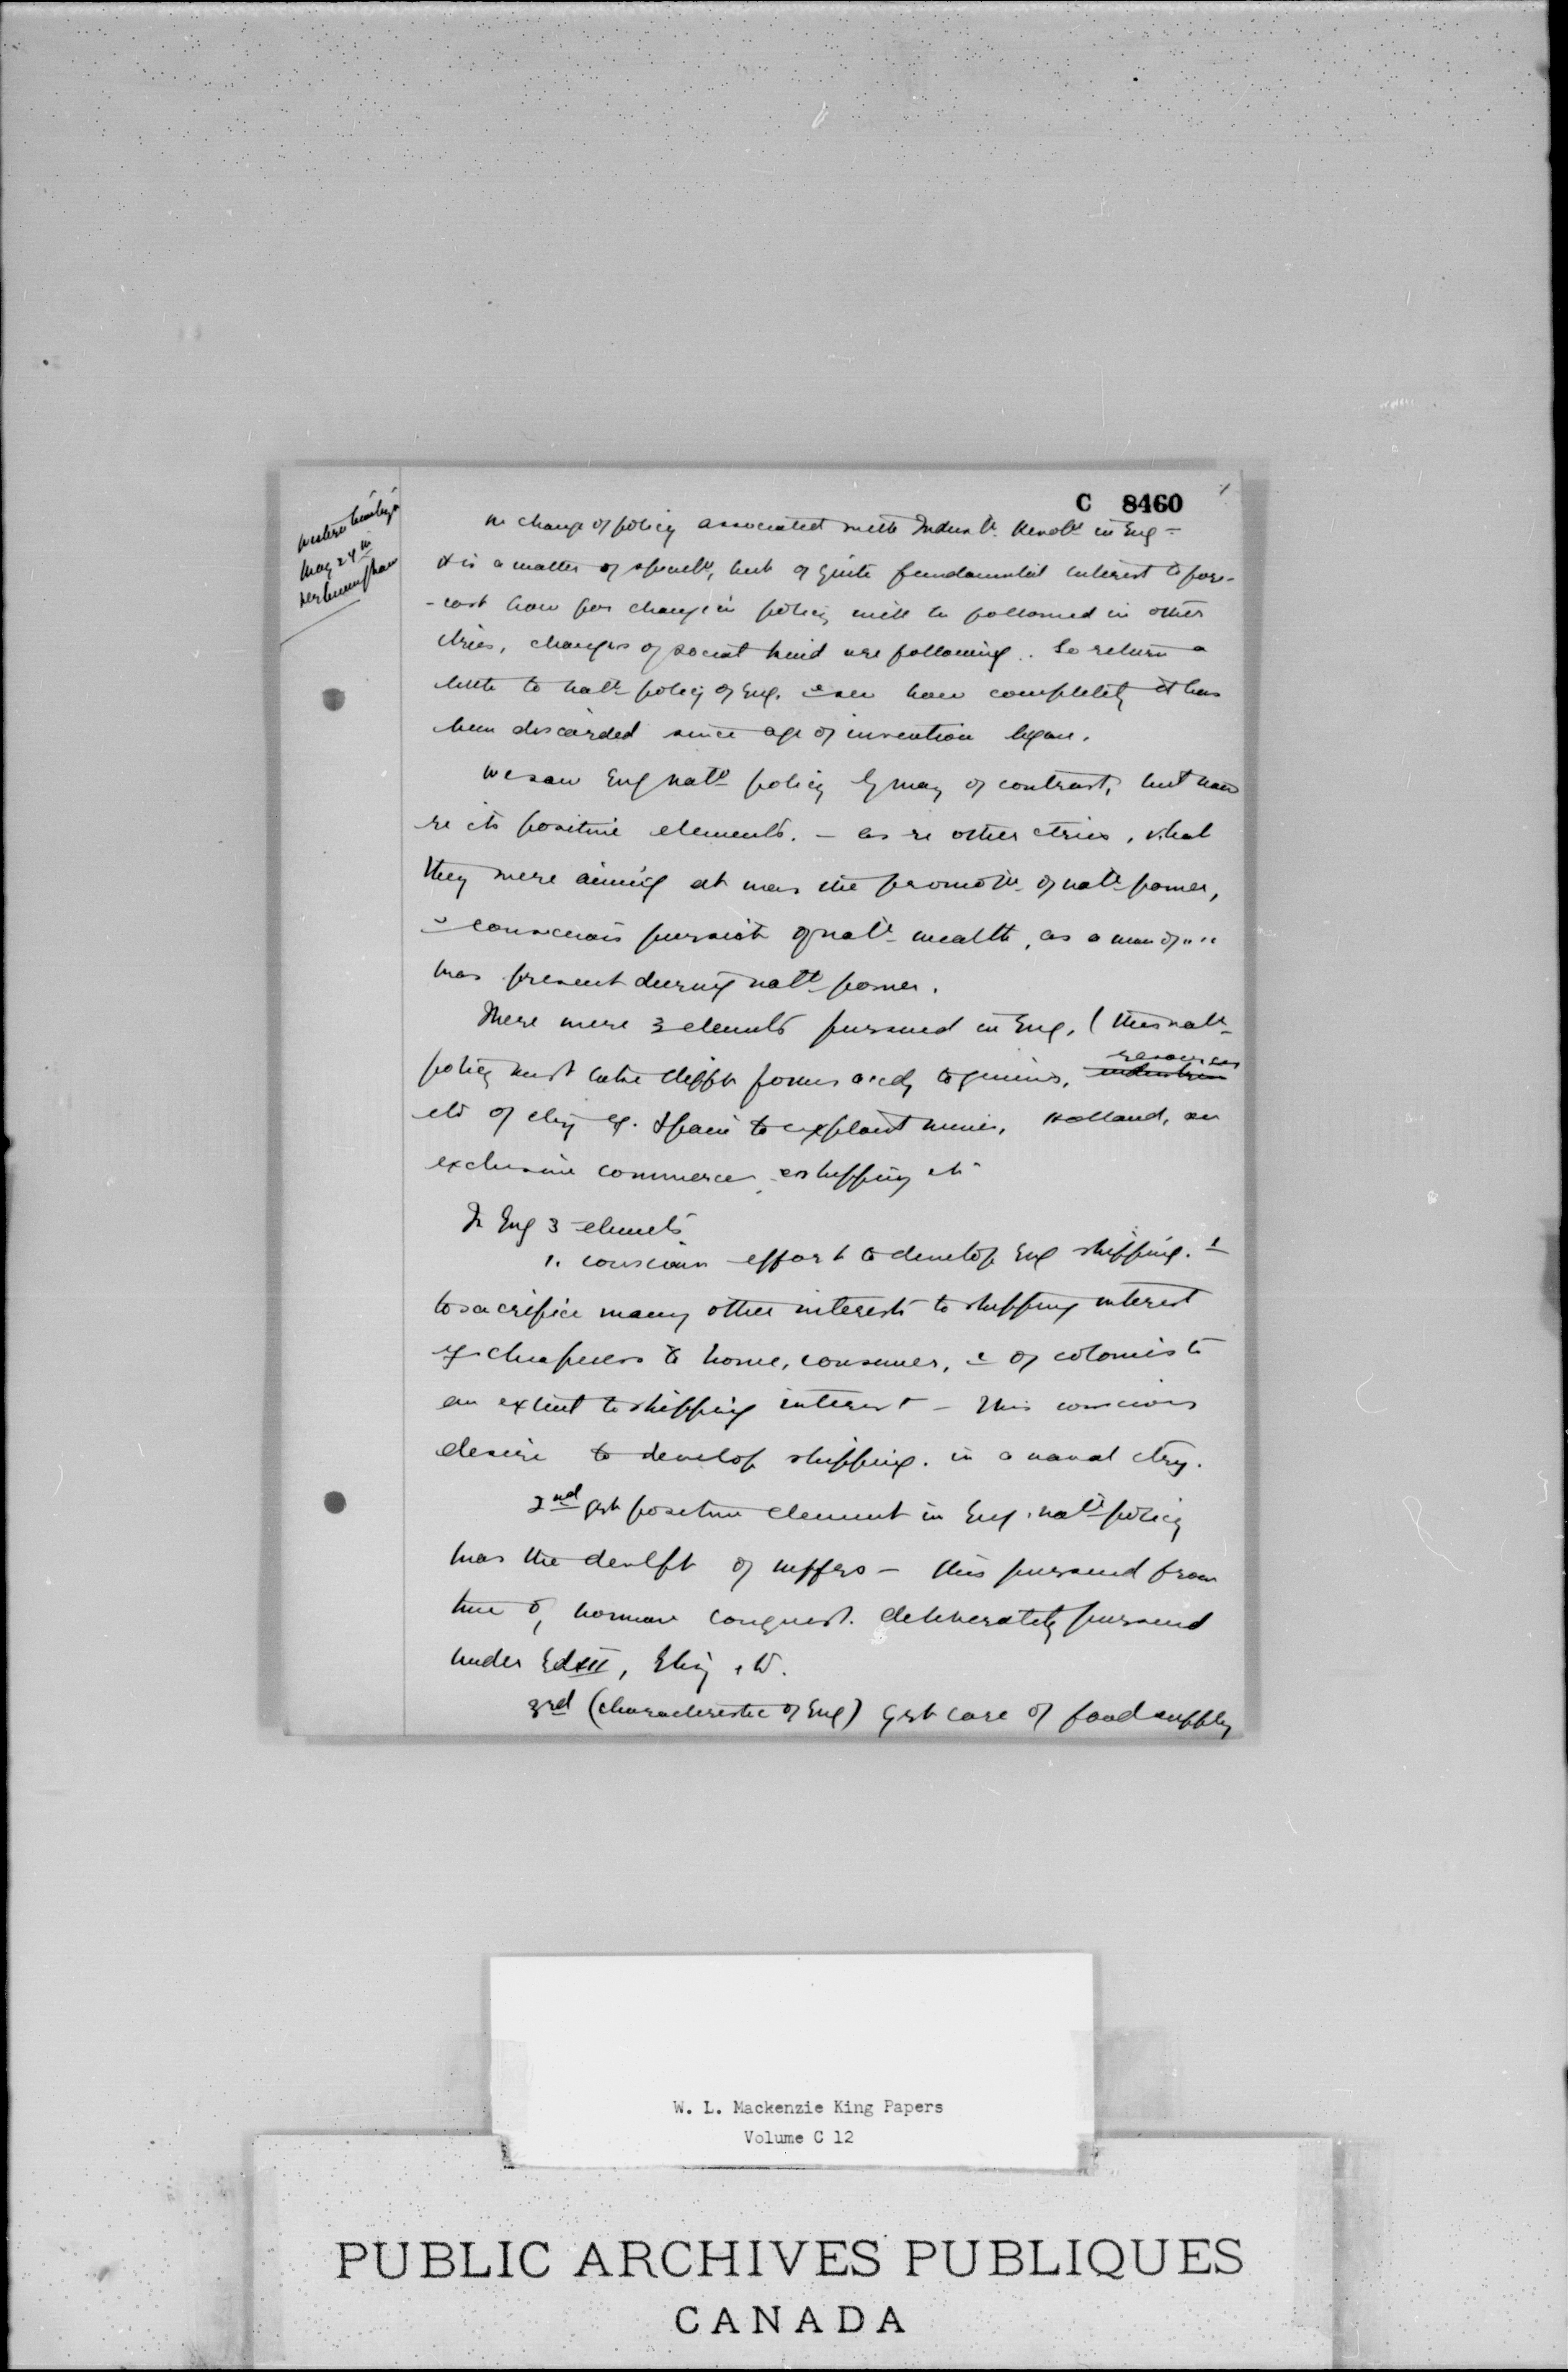 C 8460
1
May 24th
Dr Cunningham
change of policy associated with Indust'l. Revol'n in Eng -
It is a matter of specul'n, but of quite fundamental interest to fore-
-cast how far change in policy will be followed in other
ctries, changes of social kind are following. To return a
little to nat'l policy of Eng. & see how completely it has
been discarded since age of invention began.
We saw Eng nat'l policy by way of contrast, but now
re its positive elements. - as re other ctries, what
they were aiming at was the promot'n of nat'l power,
conscious pursuit of nat'l wealth, as a
was present during nat'l power.
There were 3 elements pursued in Eng. (this nat'l
policy must take diff't forms accdg to genius, resources
etc of ctry eg. Spain to exploit mines, Holland, an
exclusive commerce, & shipping etc
In Eng 3 elements
1. conscious effort to develop Eng shipping. &
to sacrifice many other interests to shipping interest
eg. cheapness to home, consumer, & of colonies to
an extent to shipping interest - This conscious
desire to develop shipping. in a naval ctry.
2nd grt positive element in Eng. nat'l policy
was the devel'pt of - this pursued from
time of Norman conquest. deliberately pursued
under Ed III, Eliz, etc.
3rd (characteristic of Eng) grt care of food supply
W. L. Mackenzie King Papers
Volume C 12
PUBLIC ARCHIVES PUBLIQUES
CANADA